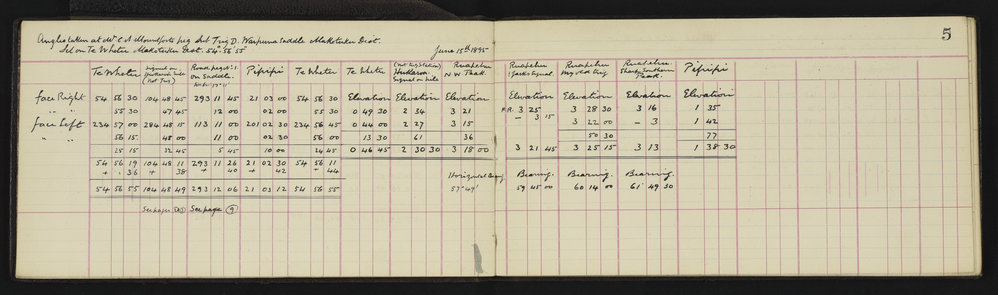 Angles taken at Mr C A Mountfort's peg Sub Trig D. Waipuna Saddle Makotuku Dist.
Set on Te Whetu Makotuku Dist. 54° 56' 55"
June 15th 1895
5
Te Whetu
Signal on
(Not Trig)
Road peg
on Saddle.
Pipiripi
Te Whetu
Te Whetu
(Not Trig Station)
Signal on hill
Ruapehu
N W Peak.
Ruapehu
Signal.
Ruapehu
Trig
Ruapehu
Sharp Southern
Peak.
Pipiripi
Face Right 54 56 30 104 48 45 293 11 45 21 03 00 54 56 30 Elevation Elevation Elevation Elevation Elevation Elevation Elevation
" " 55 30 47 45 12 00 02 00 55 30 0 49 30 2 34 3 21 F.R. 3 25 3 28 30 3 16 1 35
Face Left 234 57 00 284 48 15 113 11 00 201 02 30 234 56 45 0 44 00 2 27 3 15 – 3 15 3 22 00 – 3 1 42
" 56 15 48 00 11 00 02 30 56 00 13 30 61 36 50 30 77
25 15 32 45 5 45 10 00 24 45 0 46 45 2 30 30 3 18 00 3 21 45 3 25 15 3 13 1 38 30
54 56 19 104 48 11 293 11 26 21 02 30 54 56 11
+ 36 + 38 + 40 + 42 + 44 Horizontal Bearing. Bearing. Bearing. Bearing.
54 56 55 104 48 49 293 12 06 21 03 12 54 56 55 57° 49' 59 45 00 60 14 00 61° 49 30
See page See page 9